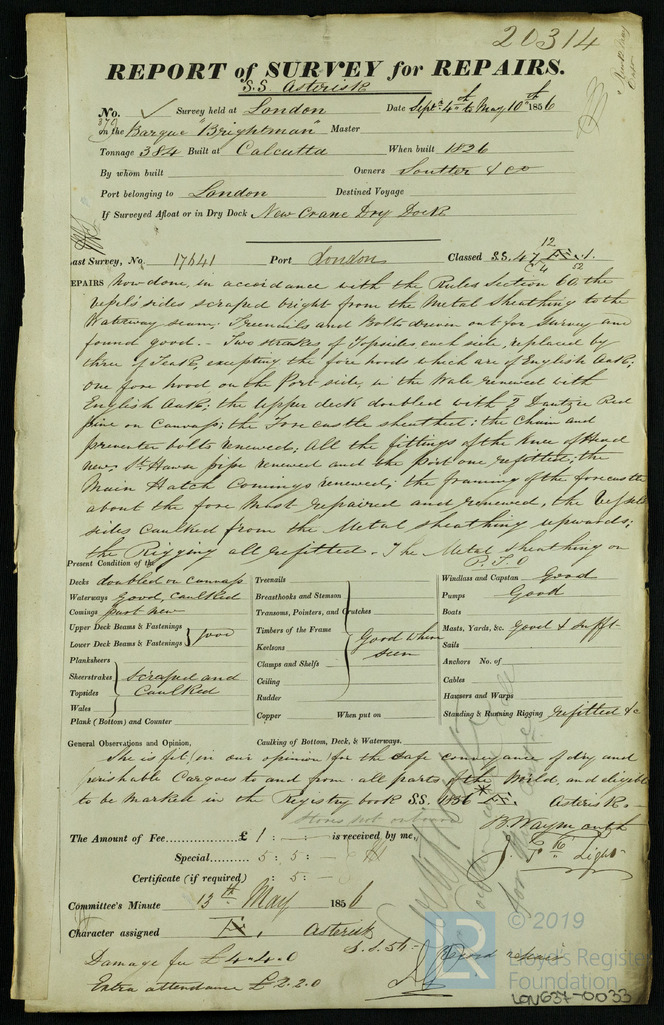 20314
REPORT of SURVEY for REPAIRS.
S.S. Asterisk
No. 370 Survey held at London Date Septr. 4th to May 10th 1856
on the Barque "Brightman" Master
Tonnage 384 Built at Calcutta When built 1826
By whom built Owners Soutter & Co
Port belonging to London Destined Voyage
If Surveyed Afloat or in Dry Dock New Crane Dry Dock
Last Survey, No. 17641 Port London Classed S.S. 47
REPAIRS now done, in accordance with the Rules Section 60, the
vessel's sides scraped bright from the Metal Sheathing to the
Waterway seam. Treenails and Bolts driven out for Survey and
found good. - Two strakes of Topsides, each side, replaced by
three of Teak, excepting the fore hoods which are of English Oak;
one fore hood on the Port side, in the Wale renewed with
English Oak; the upper deck doubled with Dantzic Red
pine on Canvass; the Forecastle sheathed; the Chain and
preventer bolts renewed; all the fittings of the knee of Head
new; St. Hawse pipe renewed and the Port one refitted; the
Main Hatch Comings renewed; the framing of the forecastle
about the fore Mast repaired and renewed, the Vessels
sides caulked from the Metal sheathing upwards;
the Rigging all refitted. The Metal Sheathing on
P.T.O
Present Condition of the
Decks doubled on canvass
Waterways Good, caulked
Comings part new
Upper Deck Beams & Fastenings
Lower Deck Beams & Fastenings } good
Planksheers
Sheerstrakes
Topsides
Wales
} Scraped and Caulked
Plank (Bottom) and Counter
Treenails
Breasthooks and Stemson
Transoms, Pointers, and Crutches
Timbers of the Frame
Keelsons
Clamps and Shelfs
Ceiling
Rudder
} Good when seen
Copper When put on
Windlass and Capstan Good
Pumps Good
Boats
Masts, Yards, &c. good & sufft
Sails
Anchors No. of
Cables
Hawsers and Warps
Standing & Running Rigging refitted &c
General Observations and Opinion, Caulking of Bottom, Deck, & Waterways.
She is fit (in our opinion) for the safe conveyance of dry and
perishable Cargoes to and from all parts of the World, and eligible
to be marked in the Registry book S.S. 1856 * Asterisk. -
Stores not on board
The Amount of Fee £ 1 : - is received by me, B. Waymouth
Special 5 : 5 : - J. Light
Certificate (if required) : 5 : -
Committee's Minute 13th May 1856
Character assigned Asterisk
S.S. 56 - Good repair
Damage fee £ 4-4-0
Extra attendance £ 2.2.0
© 2019
LR
Lloyd's Register
Foundation
LON637-0033